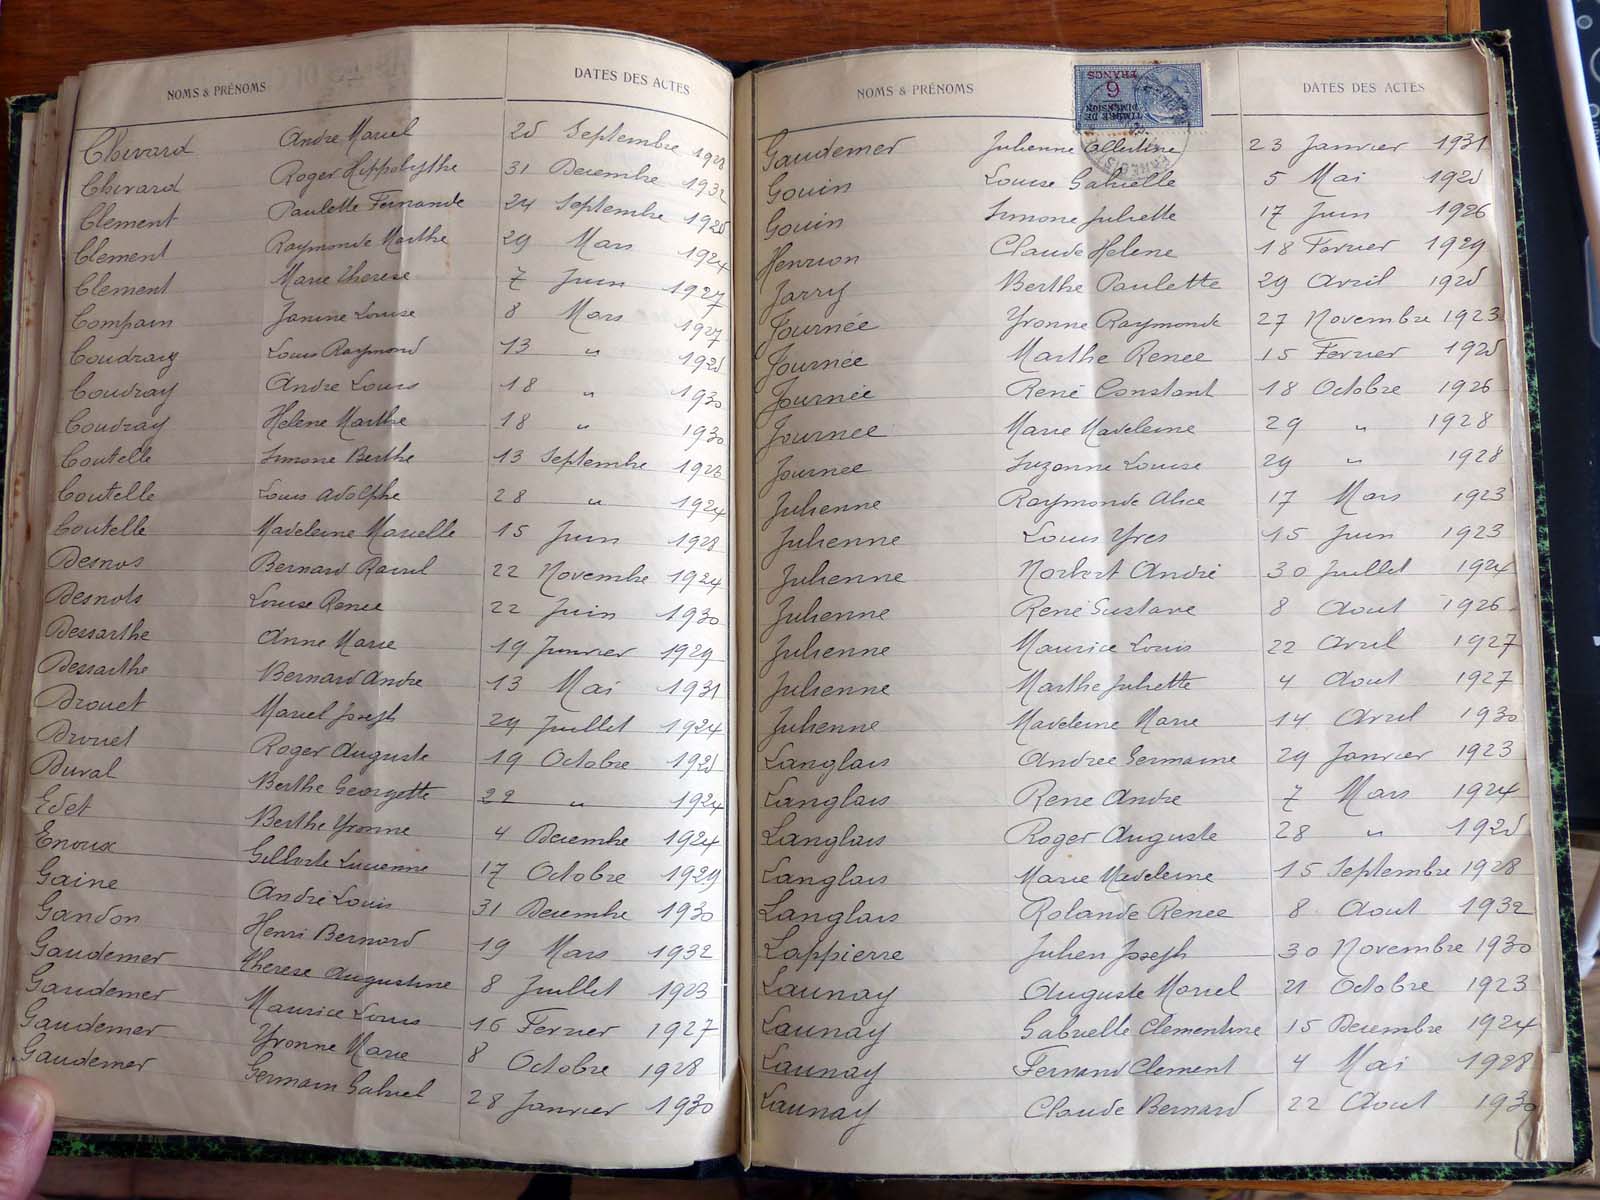 NOMS & PRÉNOMS DATES DES ACTES
Chevard André Marcel 25 Septembre 1928
Chevard Roger Hippolythe 31 Decembre 1932
Clement Paulette Fernande 24 Septembre 1925
Clement Raymonde Marthe 29 Mars 1924
Clement Marie Therese 7 Juin 1927
Compain Janine Louise 8 Mars 1927
Coudray Louis Raymond 13 " 1925
Coudray André Louis 18 " 1930
Coudray Helene Marthe 18 " 1930
Coutelle Simone Berthe 13 Septembre 1923
Coutelle Louis Adolphe 28 " 1924
Coutelle Madeleine Marcelle 15 Juin 1928
Desnos Bernard Raoul 22 Novembre 1924
Desnols Louise Renee 22 Juin 1930
Dessarthe Anne Marie 19 Janvier 1929
Dessarthe Bernard André 13 Mai 1931
Drouet Marcel Joseph 29 Juillet 1924
Drouet Roger Auguste 19 Octobre 1925
Duval Berthe Georgette 22 " 1924
Edet Berthe Yvonne 4 Decembre 1924
Enoux Gilberte Lucienne 17 Octobre 1929
Gaine André Louis 31 Decembre 1930
Gandon Henri Bernard 19 Mars 1932
Gaudemer Therese Augustine 8 Juillet 1923
Gaudemer Maurice Louis 16 Fevrier 1927
Gaudemer Yvonne Marie 8 Octobre 1928
Gaudemer Germain Gabriel 28 Janvier 1930
NOMS & PRÉNOMS DATES DES ACTES
TIMBRE DE DIMENSION
6 FRANCS
Gaudemer Julienne Albertine 23 Janvier 1931
Gouin Louise Gabrielle 5 Mai 1925
Gouin Simone Juliette 17 Juin 1926
Henrion Claude Helene 18 Fevrier 1929
Jarry Berthe Paulette 29 Avril 1925
Journée Yvonne Raymonde 27 Novembre 1923
Journée Marthe Renee 15 Fevrier 1925
Journée René Constant 18 Octobre 1926
Journee Marie Madeleine 29 " 1928
Journee Suzanne Louise 29 " 1928
Julienne Raymonde Alice 17 Mars 1923
Julienne Louis Yves 15 Juin 1923
Julienne Norbert André 30 Juillet 1924
Julienne René Gustave 8 Aout 1926
Julienne Maurice Louis 22 Avril 1927
Julienne Marthe Juliette 4 Aout 1927
Julienne Madeleine Marie 14 Avril 1930
Langlais Andree Germaine 29 Janvier 1923
Langlais Rene Andre 7 Mars 1924
Langlais Roger Auguste 28 " 1925
Langlais Marie Madeleine 15 Septembre 1928
Langlais Rolande Renee 8 Aout 1932
Lappierre Julien Joseph 30 Novembre 1930
Launay Auguste Marcel 21 Octobre 1923
Launay Gabrielle Clementine 15 Decembre 1924
Launay Fernand Clement 4 Mai 1928
Launay Claude Bernard 22 Aout 1930